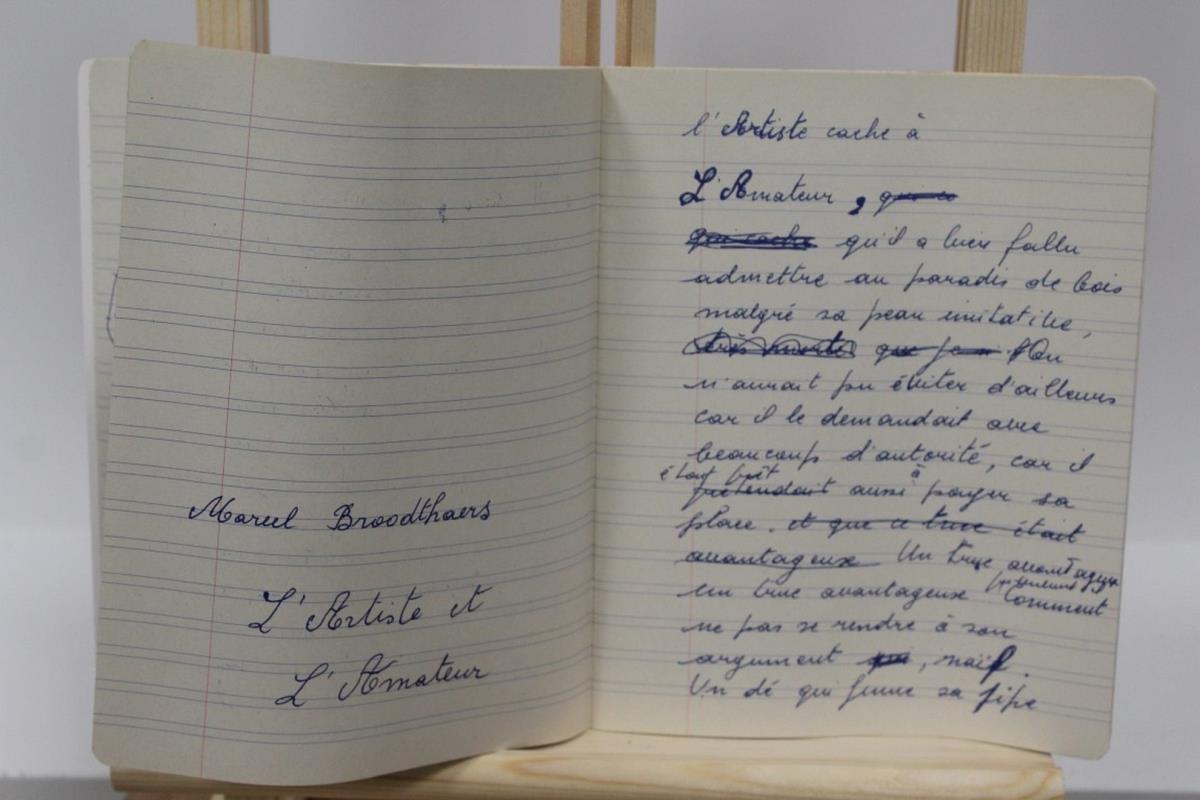 Marcel Broodthaers
L'Artiste et
L'Amateur
l'Artiste cache à
L'Amateur,
qui cache qu'il a bien fallu
admettre au paradis de bois
malgré sa peau imitative,
On
n'aurait pu éviter d'ailleurs
car il le demandait avec
beaucoup d'autorité, car il
était prêt à
prétendait aussi payer sa
place. et que ce truc était
avantageux Un truc avantageux
un truc avantageux Comment
ne pas se rendre à son
argument qui, naïf.
Un dé qui fume sa pipe